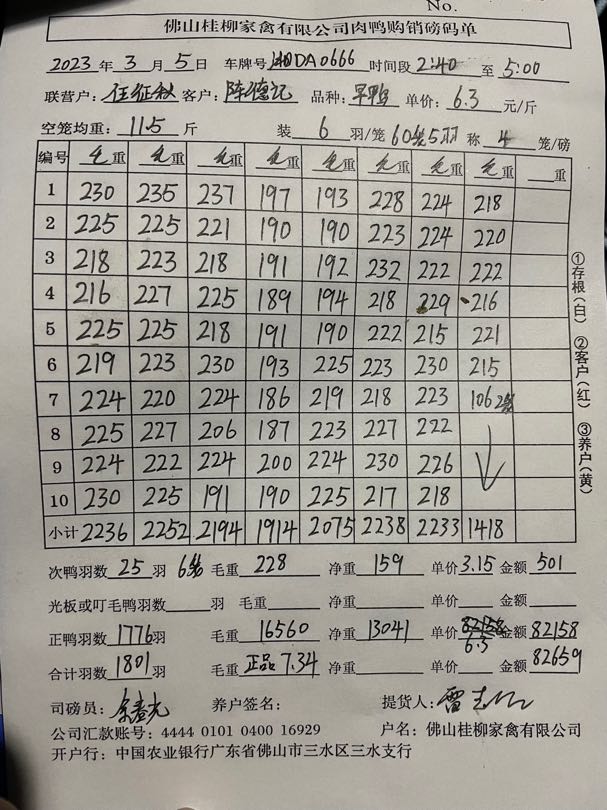 No.
佛山桂柳家禽有限公司肉鸭购销磅码单
2023 年 3 月 5 日 车牌号 DA0666 时间段 2:40 至 5:00
联营户: 客户: 陈德记 品种: 旱鸭 单价: 6.3 元/斤
空笼均重: 11.5 斤 装 6 羽/笼 60笼5羽 称 4 笼/磅
编号 毛重 毛重 毛重 毛重 毛重 毛重 毛重 毛重 重
1 230 235 237 197 193 228 224 218
2 225 225 221 190 190 223 224 220
3 218 223 218 191 192 232 222 222
4 216 227 225 189 194 218 229 216
5 225 225 218 191 190 222 215 221
6 219 223 230 193 225 223 230 215
7 224 220 224 186 219 218 223 106 2笼
8 225 227 206 187 223 227 222
9 224 222 224 200 224 230 226
10 230 225 191 190 225 217 218
小计 2236 2252 2194 1914 2075 2238 2233 1418
次鸭羽数 25 羽 6笼 毛重 228 净重 159 单价 3.15 金额 501
光板或叮毛鸭羽数 羽 毛重 净重 单价 金额
正鸭羽数 1776 羽 毛重 16560 净重 13041 单价 6.3 金额 82158
合计羽数 1801 羽 毛重 正品 7.34 净重 单价 金额 82659
司磅员: 养户签名: 提货人: 雷
公司汇款账号: 4444 0101 0400 16929 户名: 佛山桂柳家禽有限公司
开户行: 中国农业银行广东省佛山市三水区三水支行
①存根(白) ②客户(红) ③养户(黄)